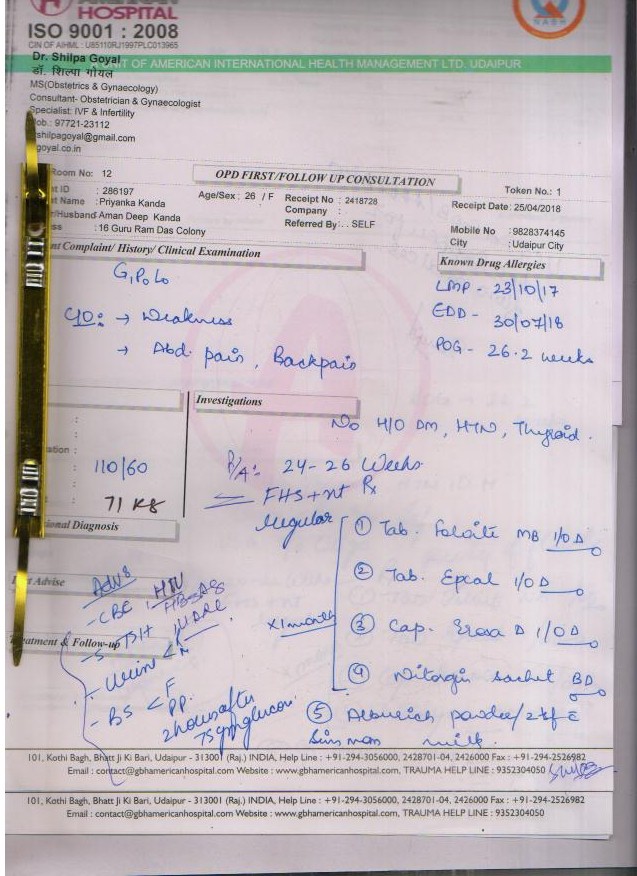 HOSPITAL
ISO 9001 : 2008
CIN OF AIHML : U85110RJ1997PLC013965
OF AMERICAN INTERNATIONAL HEALTH MANAGEMENT LTD. UDAIPUR
Dr. Shilpa Goyal
डॉ. शिल्पा गोयल
MS(Obstetrics & Gynaecology)
Consultant- Obstetrician & Gynaecologist
Specialist: IVF & Infertility
Mob.: 97721-23112
shilpagoyal@gmail.com
goyal.co.in
Room No: 12
OPD FIRST/FOLLOW UP CONSULTATION
Token No.: 1
ID : 286197
Age/Sex : 26 / F
Receipt No : 2418728
Receipt Date: 25/04/2018
Name : Priyanka Kanda
Company :
/Husband Aman Deep Kanda
Referred By: . . SELF
Mobile No : 9828374145
ss : 16 Guru Ram Das Colony
City : Udaipur City
nt Complaint/ History/ Clinical Examination
Known Drug Allergies
G1P0L0
LMP - 23/10/17
EDD - 30/07/18
POG - 26.2 weeks
C/O: → Weakness
→ Abd. pain, Backpain
Investigations
No H/O DM, HTN, Thyroid.
110/60
P/A: 24-26 Weeks
71 KG
FHS + nt Rx
Regular
ional Diagnosis
① Tab. MB 1/OD
② Tab. Epcal 1/OD
③ Cap. D 1/OD
④ sachet BD
x1month
⑤ powder/2tsf c
milk.
Advise
Adv8
- CBC, HIV
HBsAg
- S. TSH, VDRL
- Urine < R
- BS < F
PP.
2 hours after
75 gm glucose
Treatment & Follow-up
101, Kothi Bagh, Bhatt Ji Ki Bari, Udaipur - 313001 (Raj.) INDIA, Help Line : +91-294-3056000, 2428701-04, 2426000 Fax : +91-294-2526982
Email : contact@gbhamericanhospital.com Website : www.gbhamericanhospital.com, TRAUMA HELP LINE : 9352304050
101, Kothi Bagh, Bhatt Ji Ki Bari, Udaipur - 313001 (Raj.) INDIA, Help Line : +91-294-3056000, 2428701-04, 2426000 Fax : +91-294-2526982
Email : contact@gbhamericanhospital.com Website : www.gbhamericanhospital.com, TRAUMA HELP LINE : 9352304050